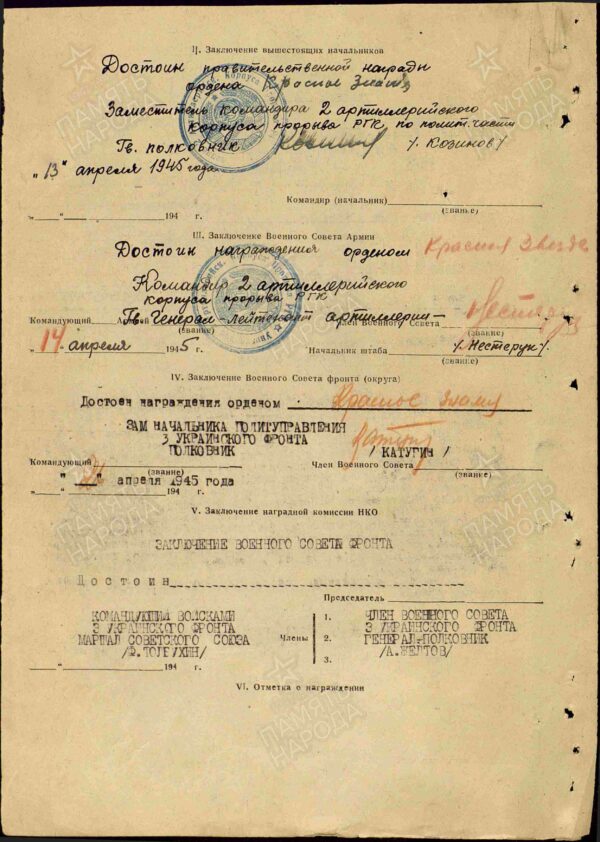 II. Заключение вышестоящих начальников
Достоин правительственной награды
ордена Красное Знамя
Заместитель командира 2 артиллерийского
корпуса прорыва РГК по полит.части
Гв. полковник /Козинов/
"13" апреля 1945 года
Командир (начальник)
(званье)
"___"___194 г.
III. Заключение Военного Совета Армии
Достоин награждения орденом Красная Звезда
Командир 2 артиллерийского
корпуса прорыва РГК
Гв. Генерал-лейтенант артиллерии-
Командующий Армией Член Военного Совета
(звание) (звание)
"14" апреля 1945 г. Начальник штаба /Нестерук/.
(звание)
IV. Заключение Военного Совета фронта (округа)
Достоен награждения орденом Красное Знамя
ЗАМ НАЧАЛЬНИКА ПОЛИТУПРАВЛЕНИЯ
3 УКРАИНСКОГО ФРОНТА
ПОЛКОВНИК / КАТУГИН /
Командующий Член Военного Совета
(звание) (звание)
апреля 1945 года
194 г.
V. Заключение наградной комиссии НКО
ЗАКЛЮЧЕНИЕ ВОЕННОГО СОВЕТА ФРОНТА
Достоин
Председатель
КОМАНДУЮЩИЙ ВОЙСКАМИ
3 УКРАИНСКОГО ФРОНТА
МАРШАЛ СОВЕТСКОГО СОЮЗА
/Ф.ТОЛБУХИН/
"___"___194 г.
Члены
1. ЧЛЕН ВОЕННОГО СОВЕТА
3 УКРАИНСКОГО ФРОНТА
2. ГЕНЕРАЛ-ПОЛКОВНИК
/А.ЖЕЛТОВ/
3.
VI. Отметка о награждении
ПАМЯТЬ НАРОДА